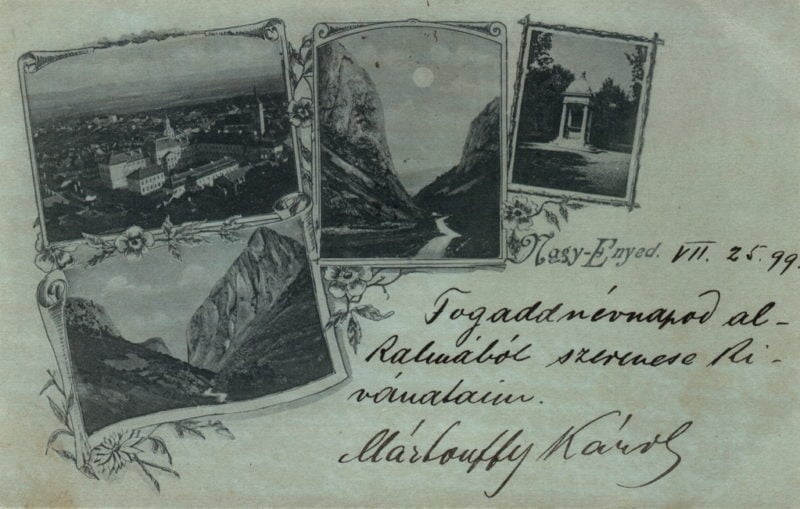 Nagy-Enyed. VII. 25. 99.
Fogadd névnapod al-
kalmából szerencse ki-
vánataim.
Mártonffy Károl